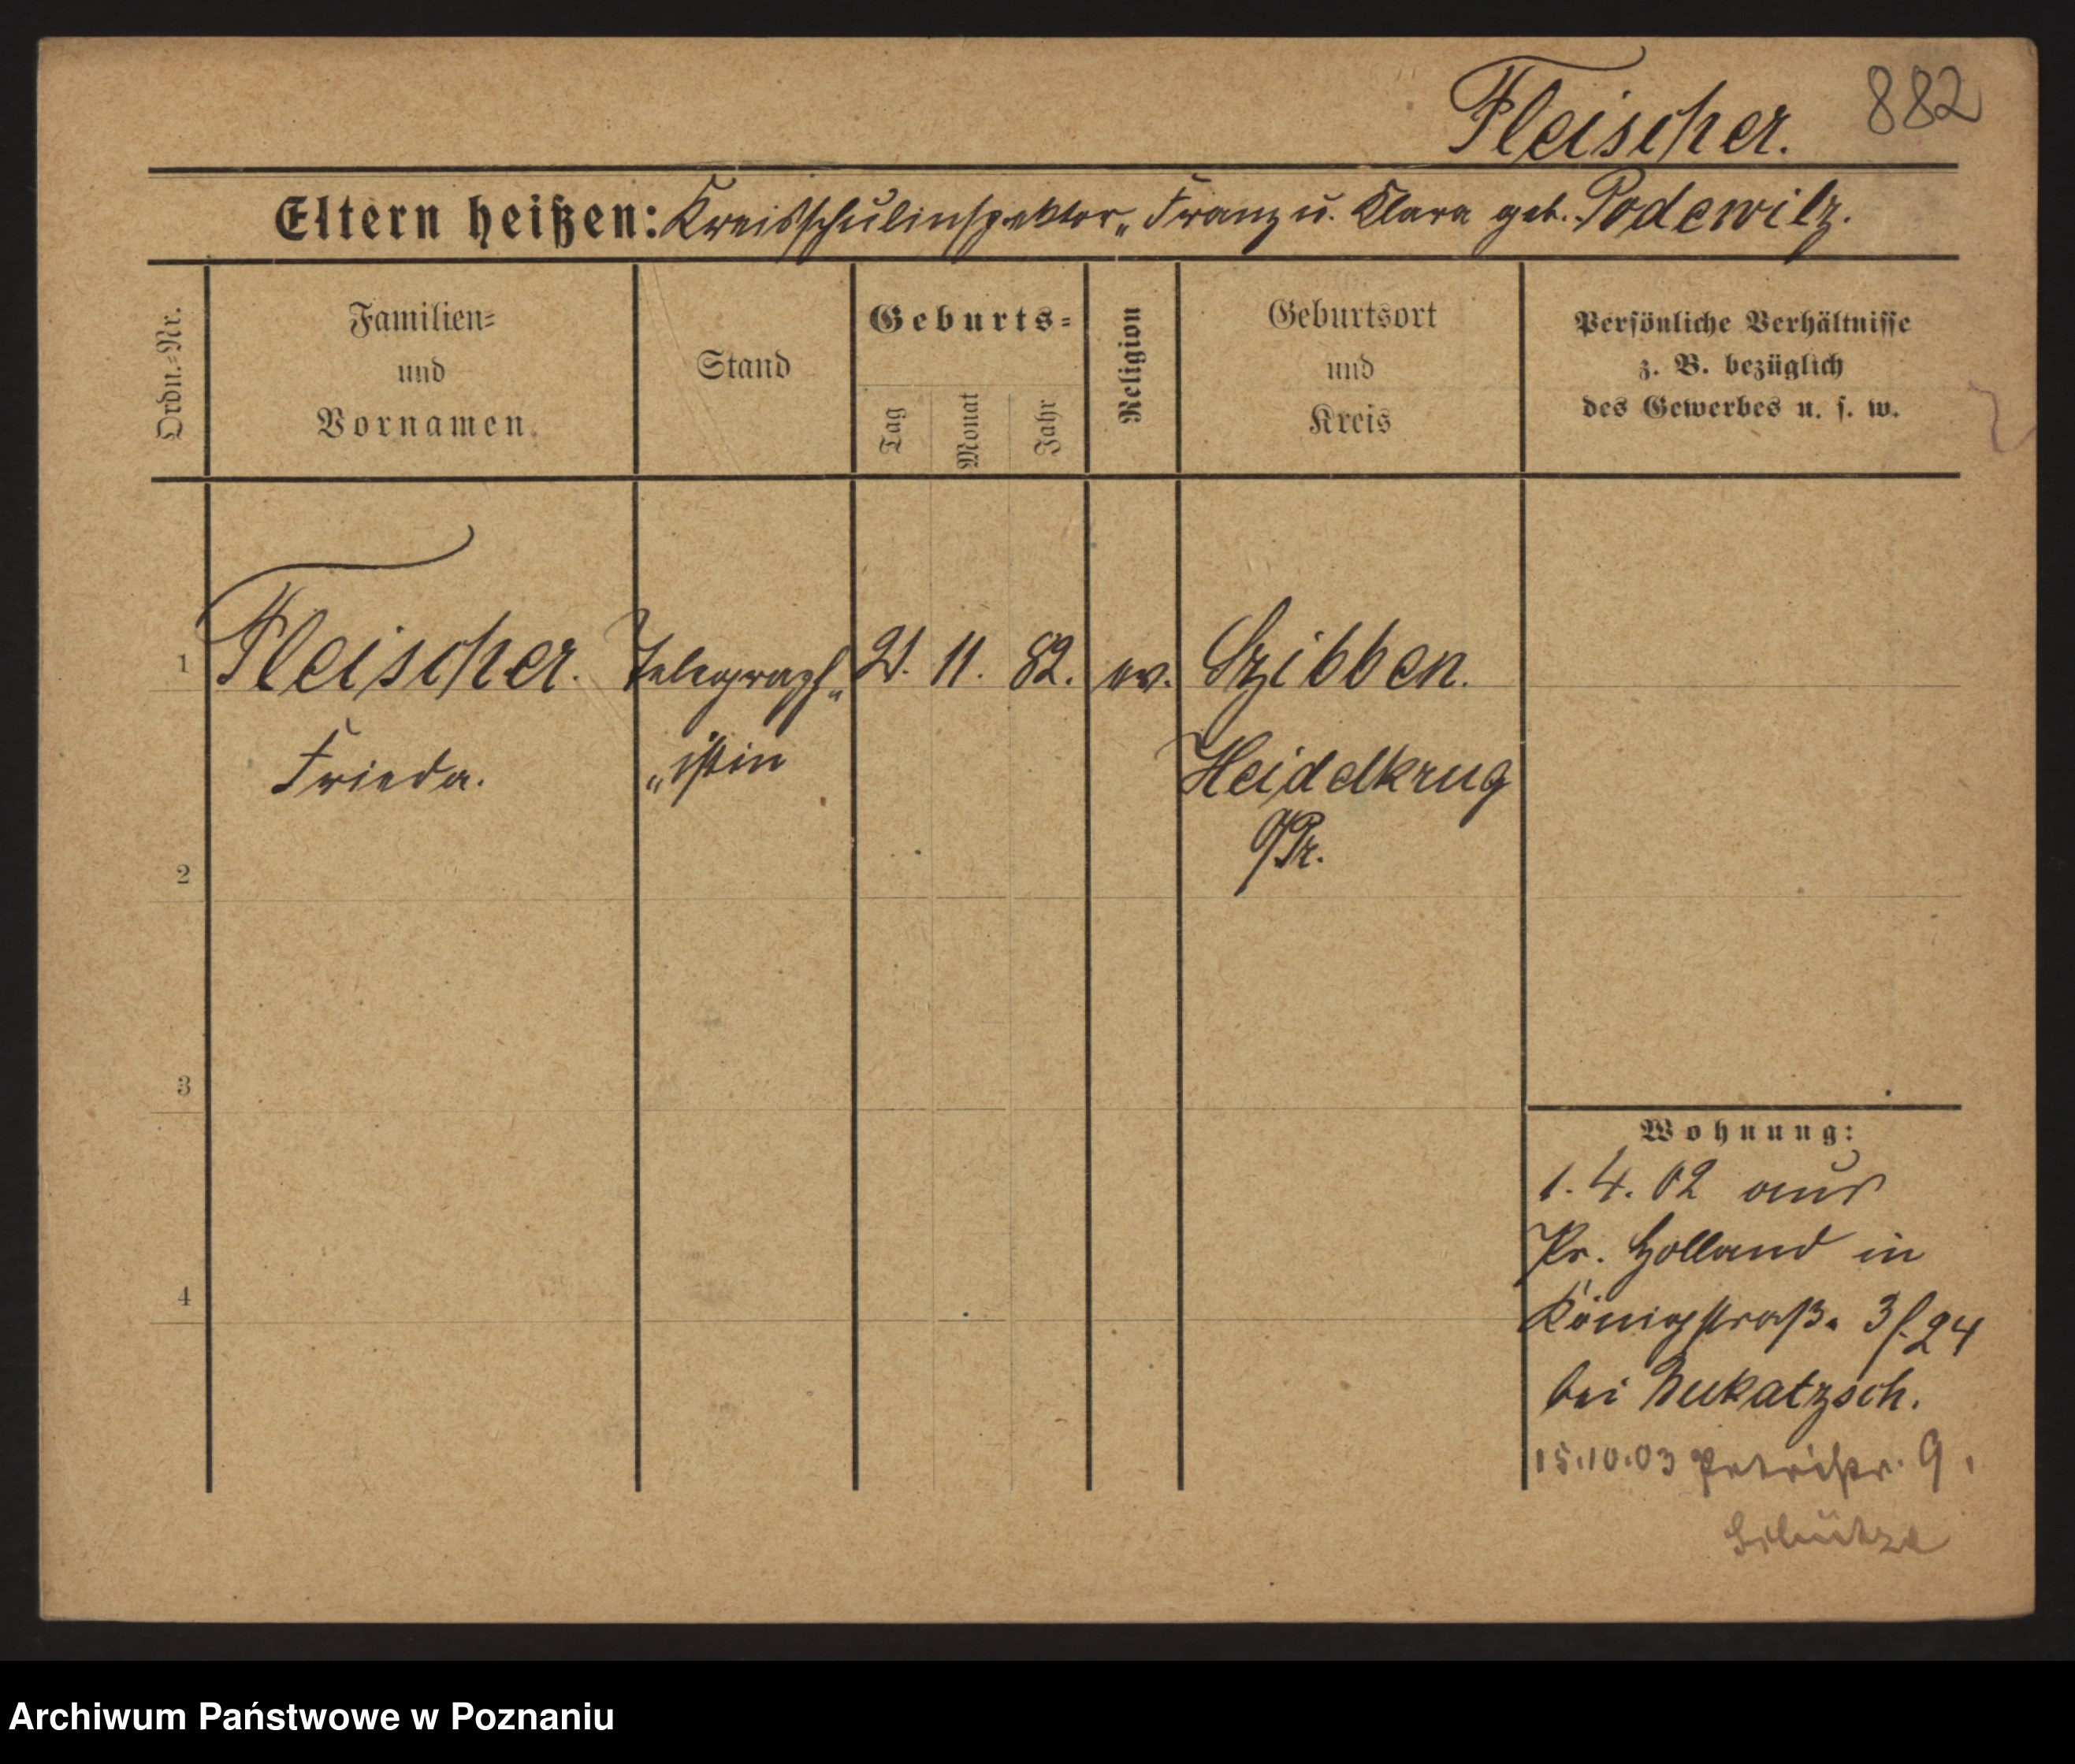 Fleischer. 882
Eltern heißen: Kreisschulinspektor„ Franz u. Klara geb. Podewilz.
Ordn.=Nr.
Familien=
und
Vornamen.
Stand
Geburts=
Tag
Monat
Jahr
Religion
Geburtsort
und
Kreis
Persönliche Verhältnisse
z. B. bezüglich
des Gewerbes u. s. w.
1 Fleischer. Telegraph„ 21. 11. 82. ev. Szibben.
Frieda. „istin Heidelkrug
O/Pr.
2
3
4
Wohnung:
1. 4. 02 aus
Pr. Holland in
Königstraß. 3/24
bei
15.10.03 Petristr. 9.
Schütze
Archiwum Państwowe w Poznaniu